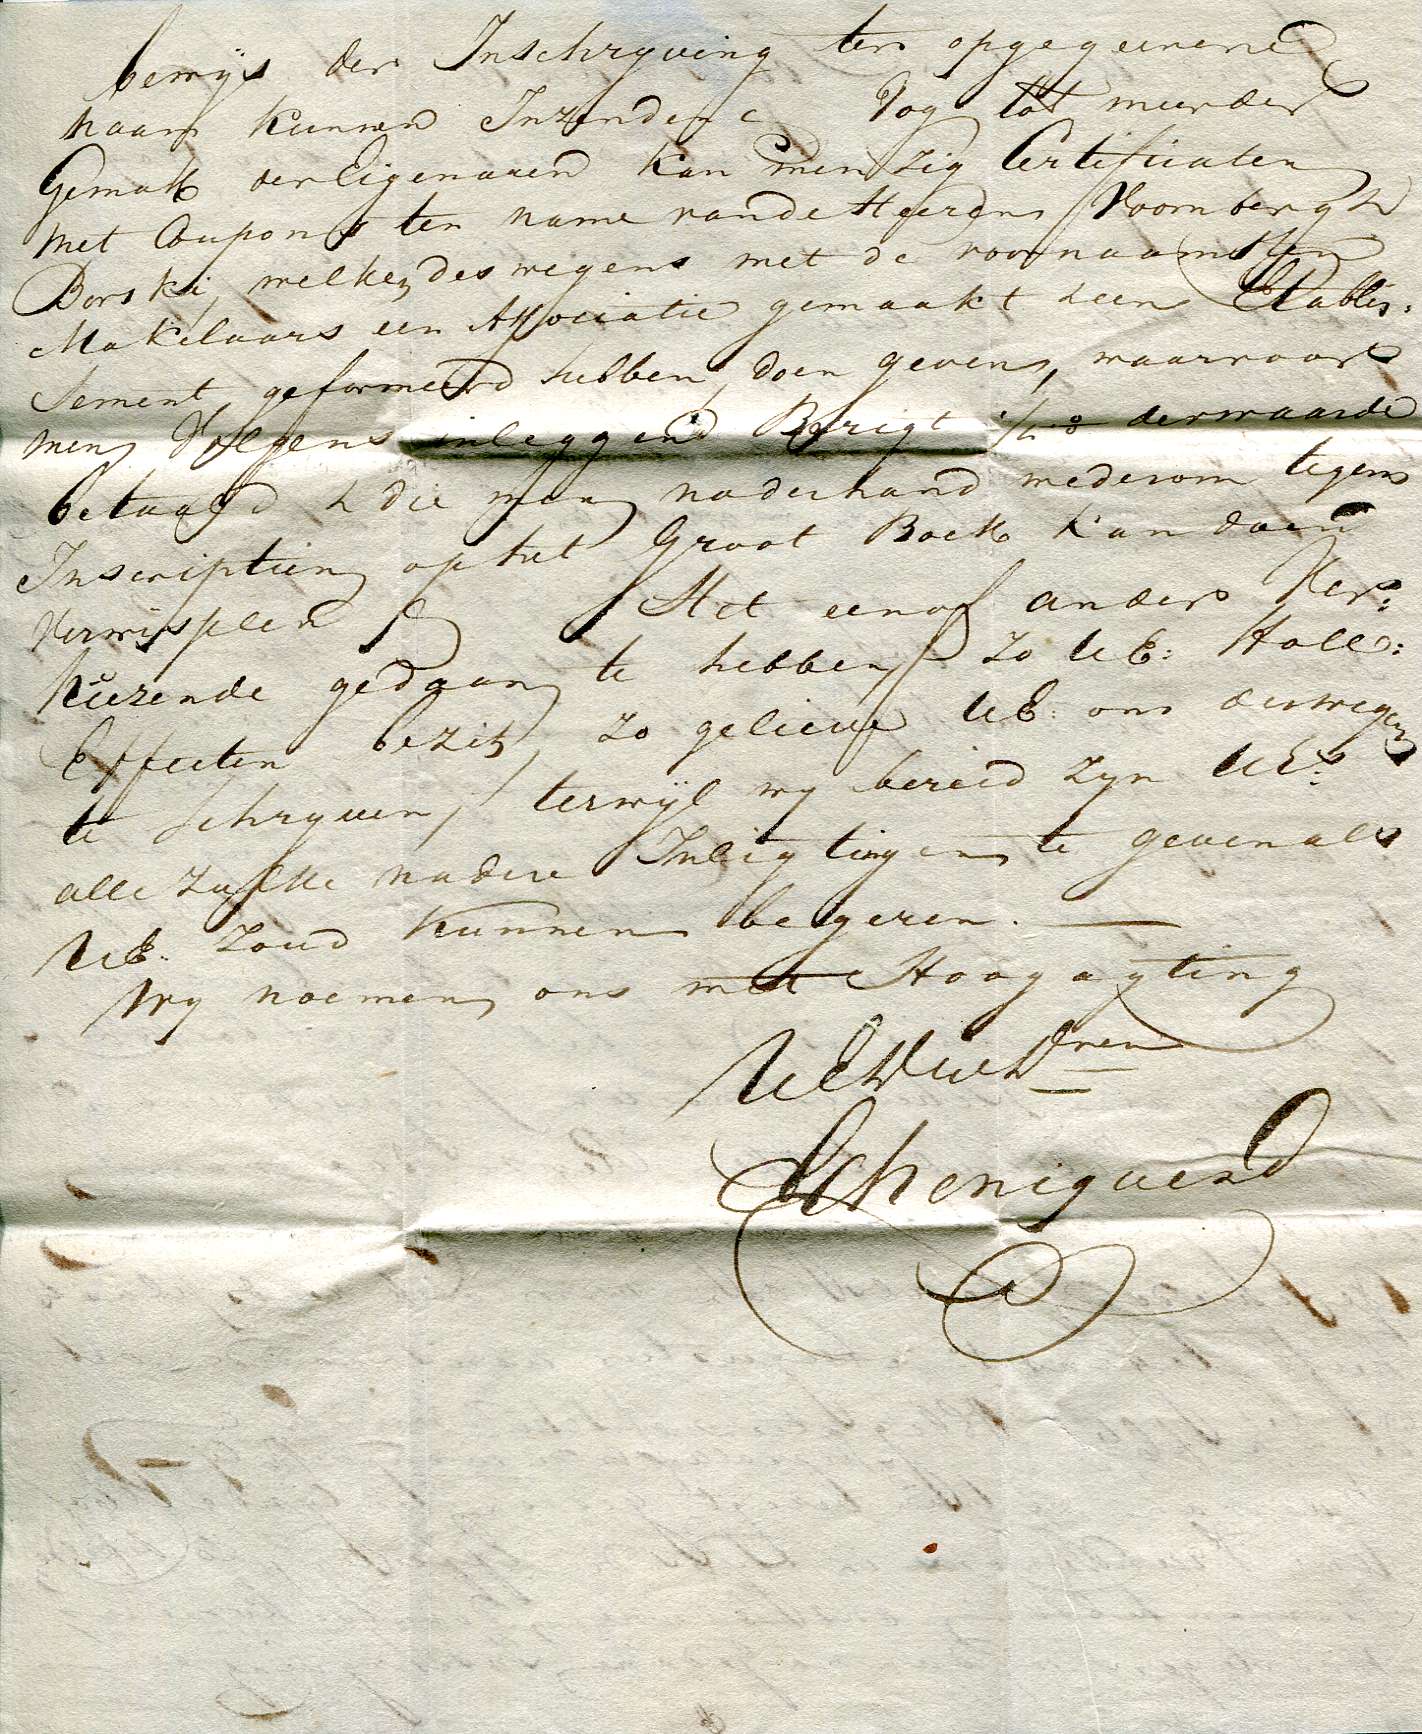 bewijs der Inschryving ten opgegeevene
naam kunnen Inzenden Dog tot meerder
Gemak der Eigenaren kan men zig Certificaten
met Coupons ten name van de Heeren Voombergh
Borski, welke deswegens met de voornaamsten
Makelaars een Associatie gemaakt & een Etablis:
sement geformeerd hebben, doen geven, waarvoor
men Volgens inleggend Berigt der waarde
betaald & die men naderhand wederom tegens
Inscriptien op het Groot Boek kan doen
Verwisselen Het een of ander Ver:
kiezende gedaan te hebben, zo UE: Holl:
Effecten bezit, zo gelieve UE: ons deswegens
te schryven, terwijl wy bereid zyn UE:
alle zulke nadere Inligtingen te geven als
UE: zoud kunnen begeren.
Wy noemen ons met Hoogagting
UEDWDnren